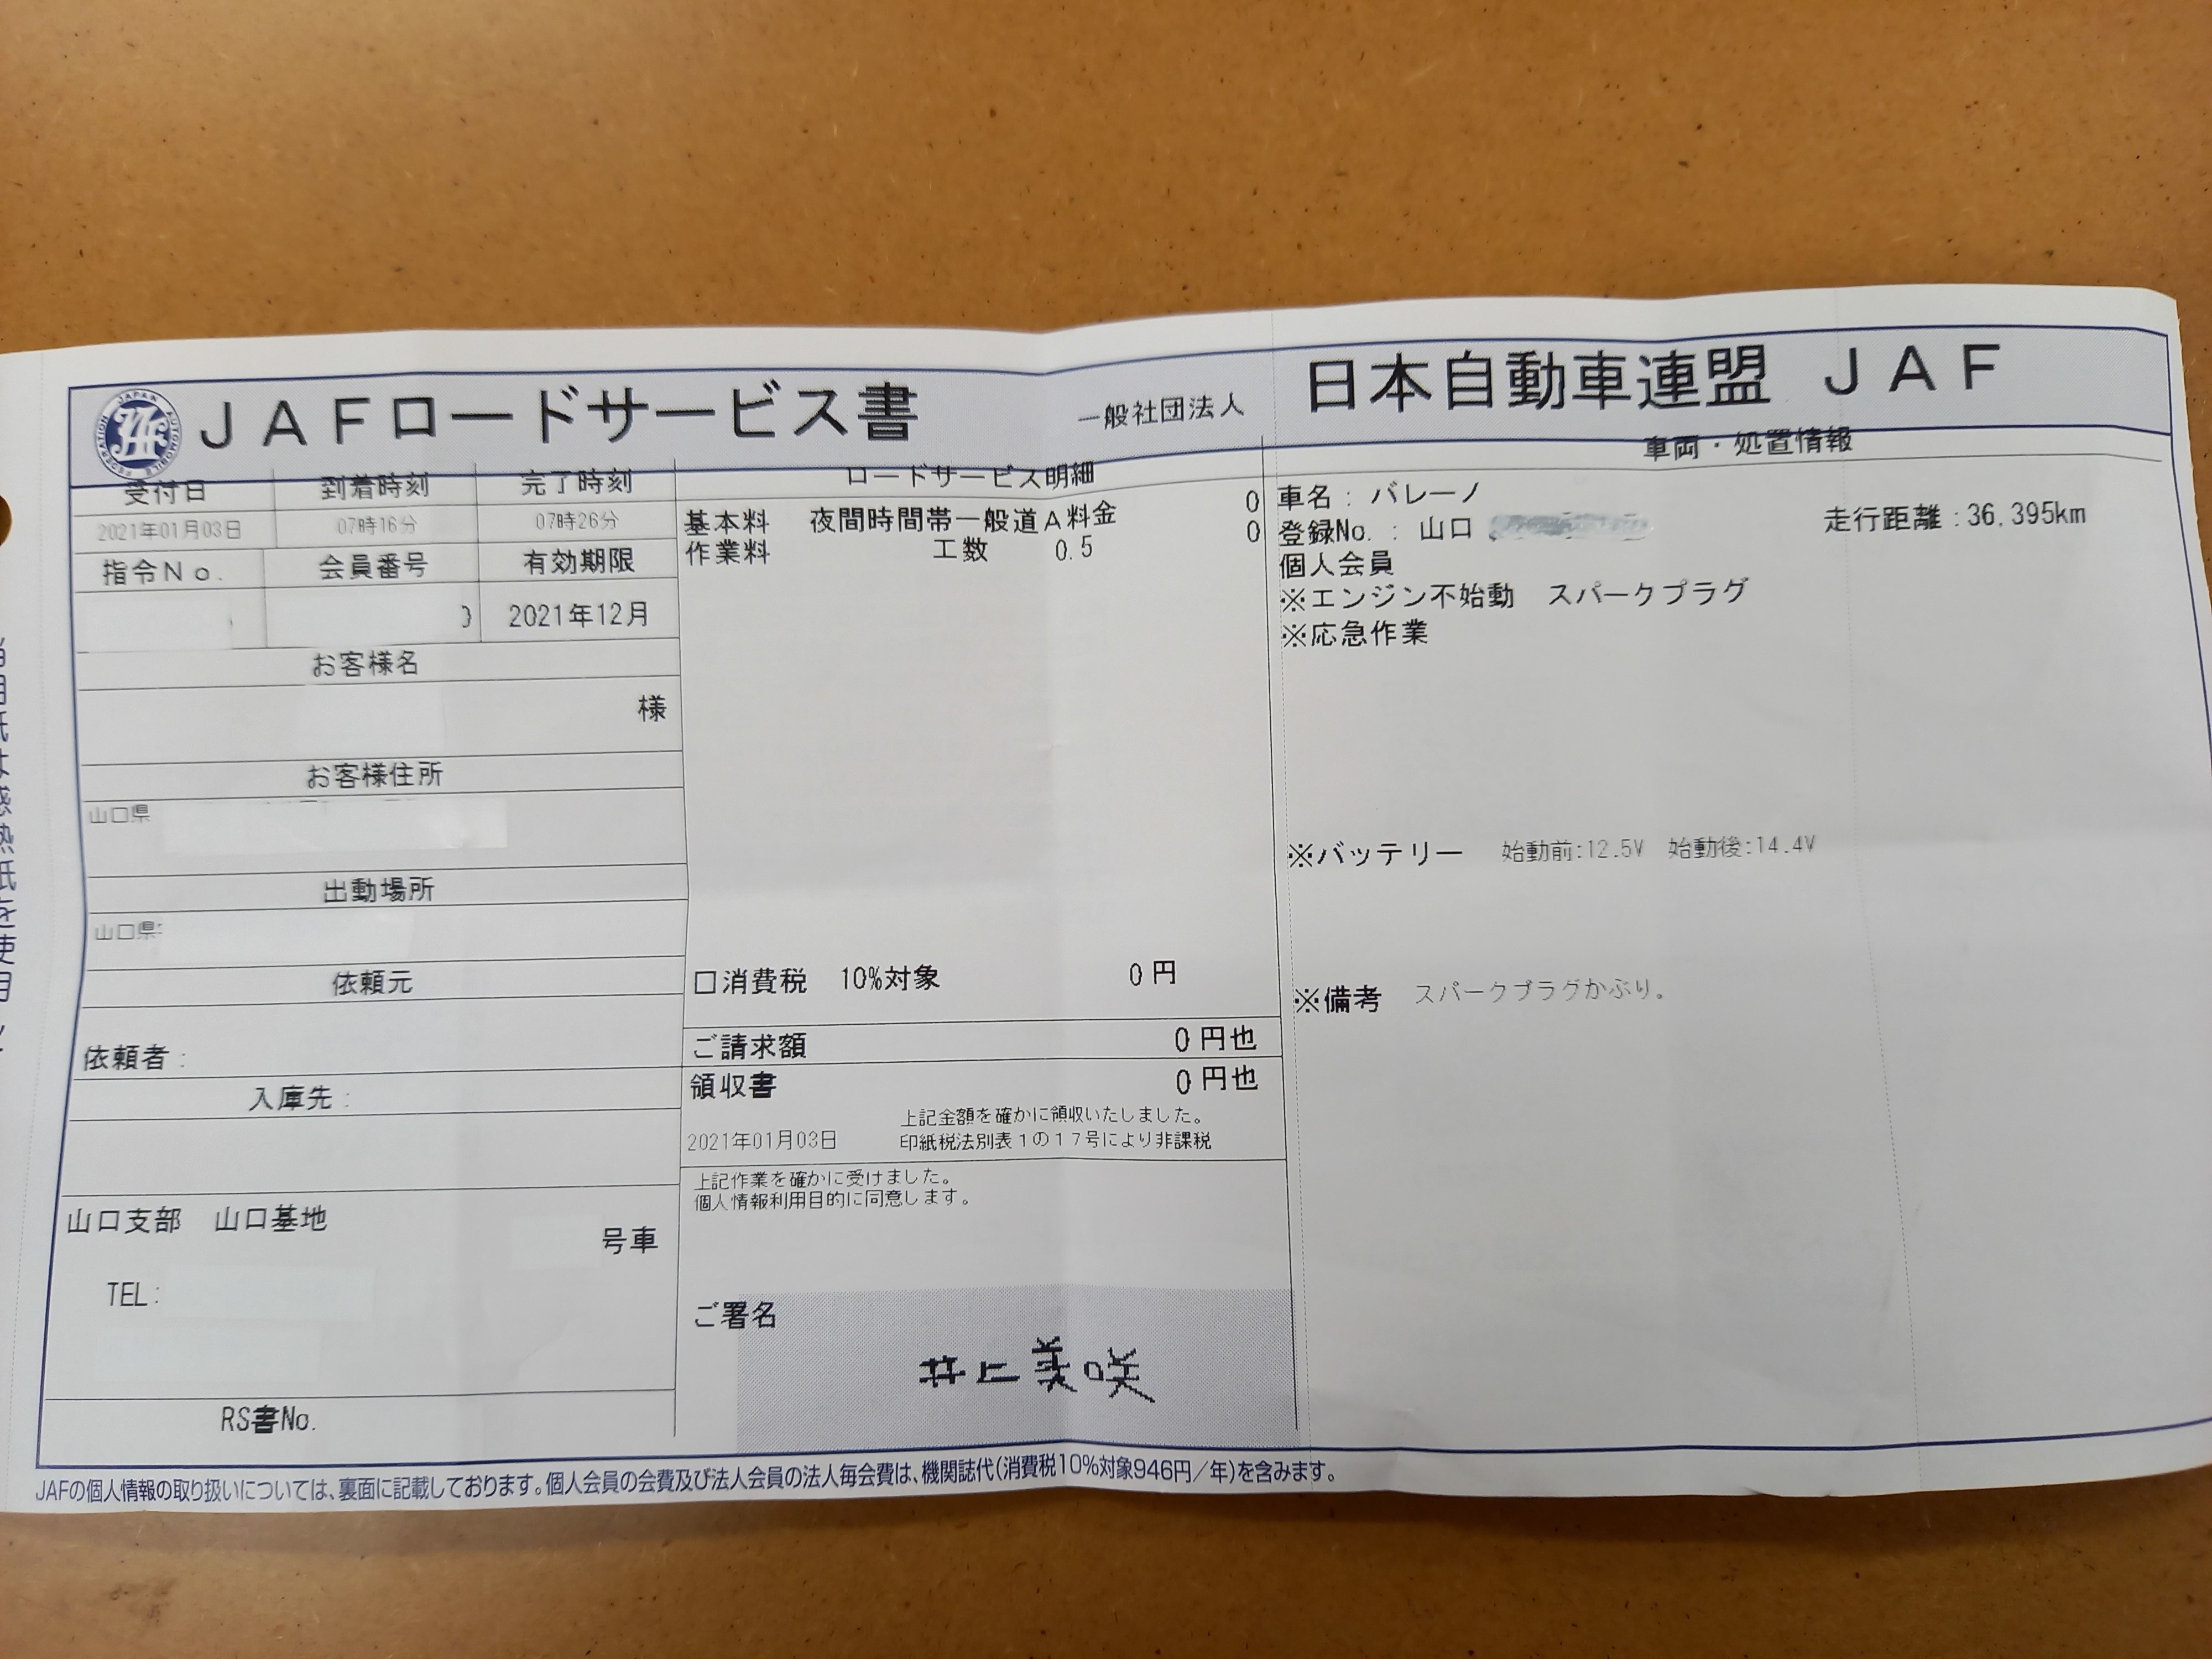 JAFロードサービス書
一般社団法人
日本自動車連盟 JAF
JAPAN AUTOMOBILE FEDERATION
JAF
受付日 到着時刻 完了時刻
2021年01月03日 07時16分 07時26分
指令No. 会員番号 有効期限
2021年12月
お客様名
様
お客様住所
山口県
出動場所
山口県
依頼元
依頼者:
入庫先:
山口支部 山口基地
号車
TEL:
RS書No.
ロードサービス明細
基本料 夜間時間帯一般道A料金 0
作業料 工数 0.5 0
口消費税 10%対象 0円
ご請求額 0円也
領収書 0円也
上記金額を確かに領収いたしました。
2021年01月03日 印紙税法別表1の17号により非課税
上記作業を確かに受けました。
個人情報利用目的に同意します。
ご署名
井上美咲
車両・処置情報
車名: バレーノ
登録No.: 山口 走行距離:36,395km
個人会員
※エンジン不始動 スパークプラグ
※応急作業
※バッテリー 始動前:12.5V 始動後:14.4V
※備考 スパークプラグかぶり。
JAFの個人情報の取り扱いについては、裏面に記載しております。個人会員の会費及び法人会員の法人毎会費は、機関誌代(消費税10%対象946円/年)を含みます。